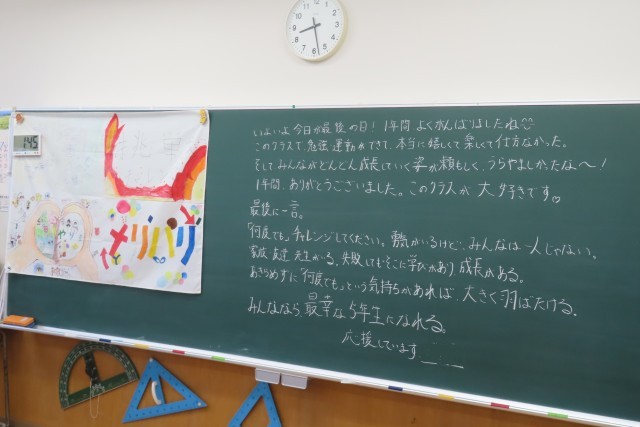 145
メリハリ
いよいよ今日が最後の日！1年間よくがんばりましたね
このクラスで、勉強、運動ができて、本当に嬉しくて楽しくて仕方なかった。
そしてみんながどんどん成長していく姿が頼もしく、うらやましかったな〜！
1年間、ありがとうございました。このクラスが大好きです♡
最後に一言。
「何度でも」チャレンジしてください。壁があるけど、みんなは一人じゃない。
家族、友達、先生がいる。失敗してもそこに学びがあり、成長がある。
あきらめずに「何度でも」という気持ちがあれば、大きく羽ばたける。
みんななら、最幸な5年生になれる。
応援しています